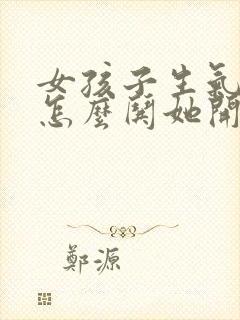 女孩子生氣
怎麼鬨她開
鄭源